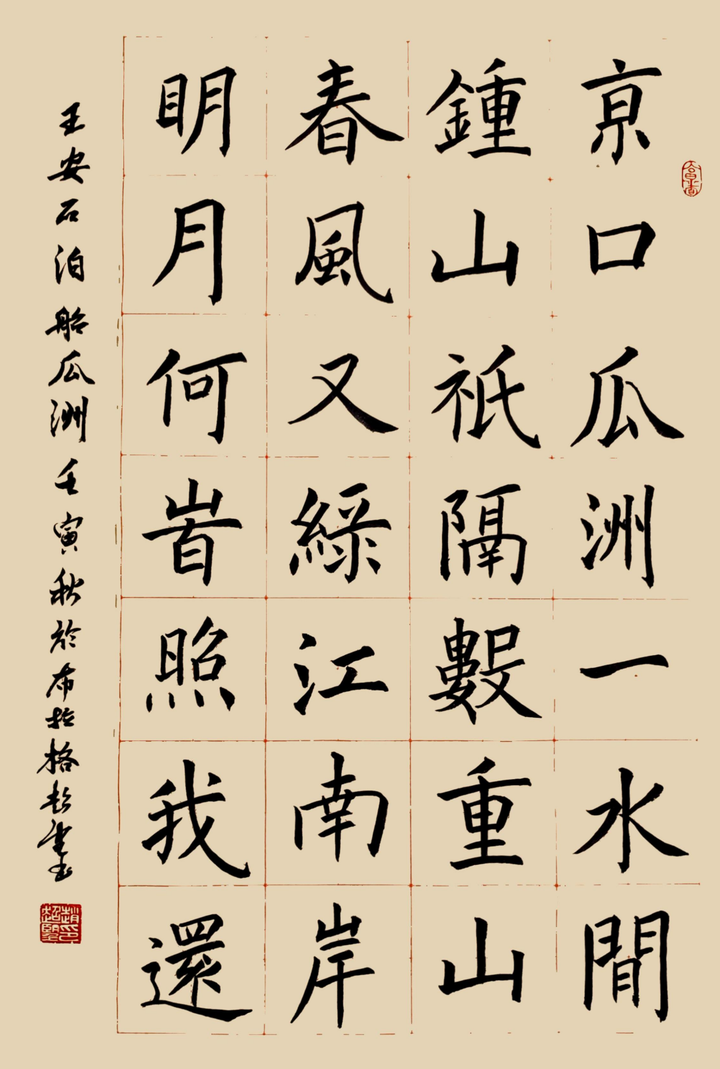 亰口瓜洲一水間
鍾山祇隔數重山
春風又綠江南岸
明月何峕照我還
王安石泊船瓜洲 壬寅秋於布拉格